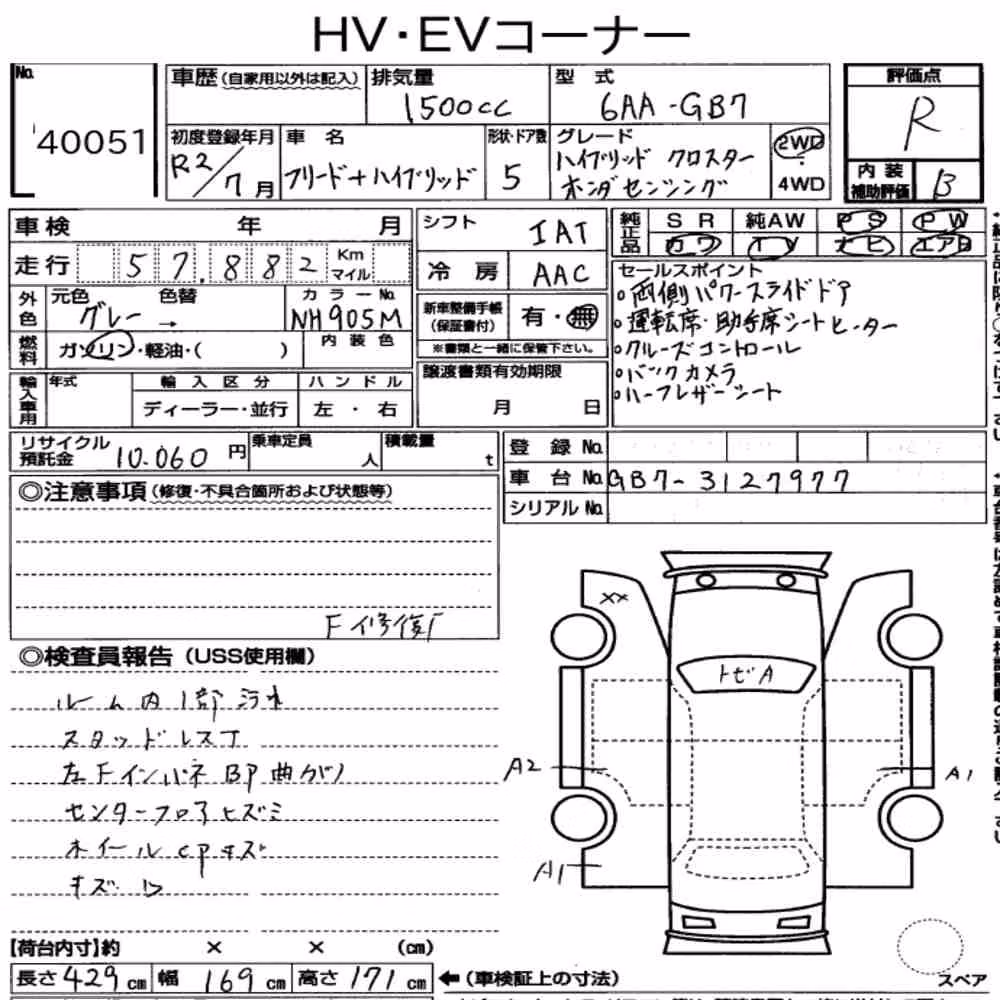 HV・EVコーナー
No. 40051
車歴(自家用以外は記入) 排気量 1500cc 型式 6AA-GB7
評価点 R
内装補助評価 B
初度登録年月 R2/7月 車名 フリード+ハイブリッド 形状・ドア数 5 グレード ハイブリッド クロスター ホンダセンシング 2WD・4WD
車検 年 月
走行 57,882 Km マイル
シフト IAT
冷房 AAC
純正品 SR 純AW PS PW
カワ TV ナビ エアB
外色 元色 グレー → 色替 カラーNo. NH905M
燃料 ガソリン・軽油・( ) 内装色
新車整備手帳(保証書付) 有・無
※書類と一緒に保管下さい。
セールスポイント
○両側パワースライドドア
○運転席・助手席シートヒーター
○クルーズコントロール
○バックカメラ
○ハーフレザーシート
輸入車用 年式 輸入区分 ハンドル
ディーラー・並行 左・右
譲渡書類有効期限
月 日
リサイクル預託金 10.060円 乗車定員 人 積載量 t
登録No.
車台No. GB7-3127977
シリアルNo.
◎注意事項(修復・不具合箇所および状態等)
F修復
◎検査員報告(USS使用欄)
ルーム内1部汚れ
スタッドレスT
左FインパネBP曲がり
センターフロアヒズミ
ホイールcpキズ
キズ
XX
トビA
A2
A1
A1
【荷台内寸】約 × × (cm)
長さ429cm 幅169cm 高さ171cm ←(車検証上の寸法)
スペア